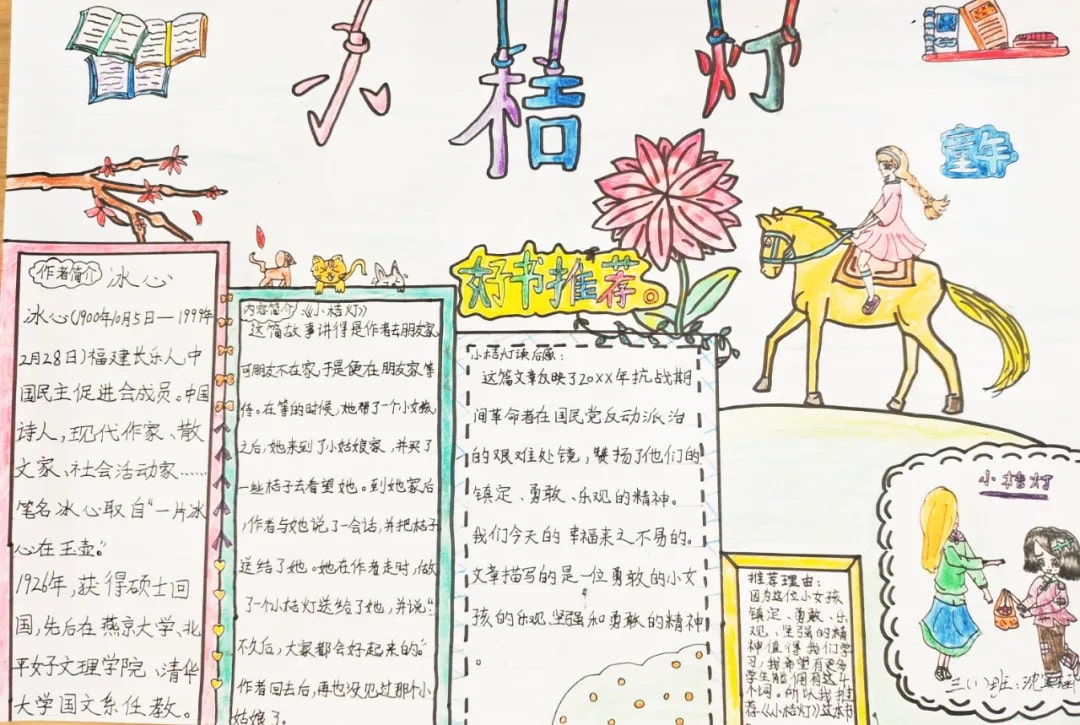 小桔灯
童年
好书推荐。
作者简介 冰心
冰心(1900年10月5日—1999年
2月28日)福建长乐人,中
国民主促进会成员。中国
诗人,现代作家、散
文家、社会活动家……
笔名冰心取自“一片冰
心在玉壶。”
1926年,获得硕士回
国,先后在燕京大学、北
平女子文理学院、清华
大学国文系任教。
内容简介:《小桔灯》
这篇故事讲得是作者去朋友家,
可朋友不在家,于是便在朋友家等
待。在等的时候,她帮了一个小女孩,
之后,她来到了小姑娘家,并买了
一些桔子去看望她。到她家后
,作者与她说了一会话,并把桔子
送结了她。她在作者走时,做
了一个小桔灯送给了她,并说“
不久后,大家都会好起来的”
作者回去后,再也没见过那个小
姑娘了。
小桔灯读后感:
这篇文章反映了20XX年抗战期
间革命者在国民党反动派治
的艰难处镜,赞扬了他们的
镇定、勇敢、乐观的精神。
我们今天的幸福来之不易的。
文章描写的是一位勇敢的小女
孩的乐观、坚强和勇敢的精神
。
推荐理由:
因为这位小女孩
镇定、勇敢、乐
观、坚强的精
神值得我们学
习,我希望有更多
学生能拥有这4
个词。所以我推
荐《小桔灯》这本书
小桔灯
三(1)班:沈